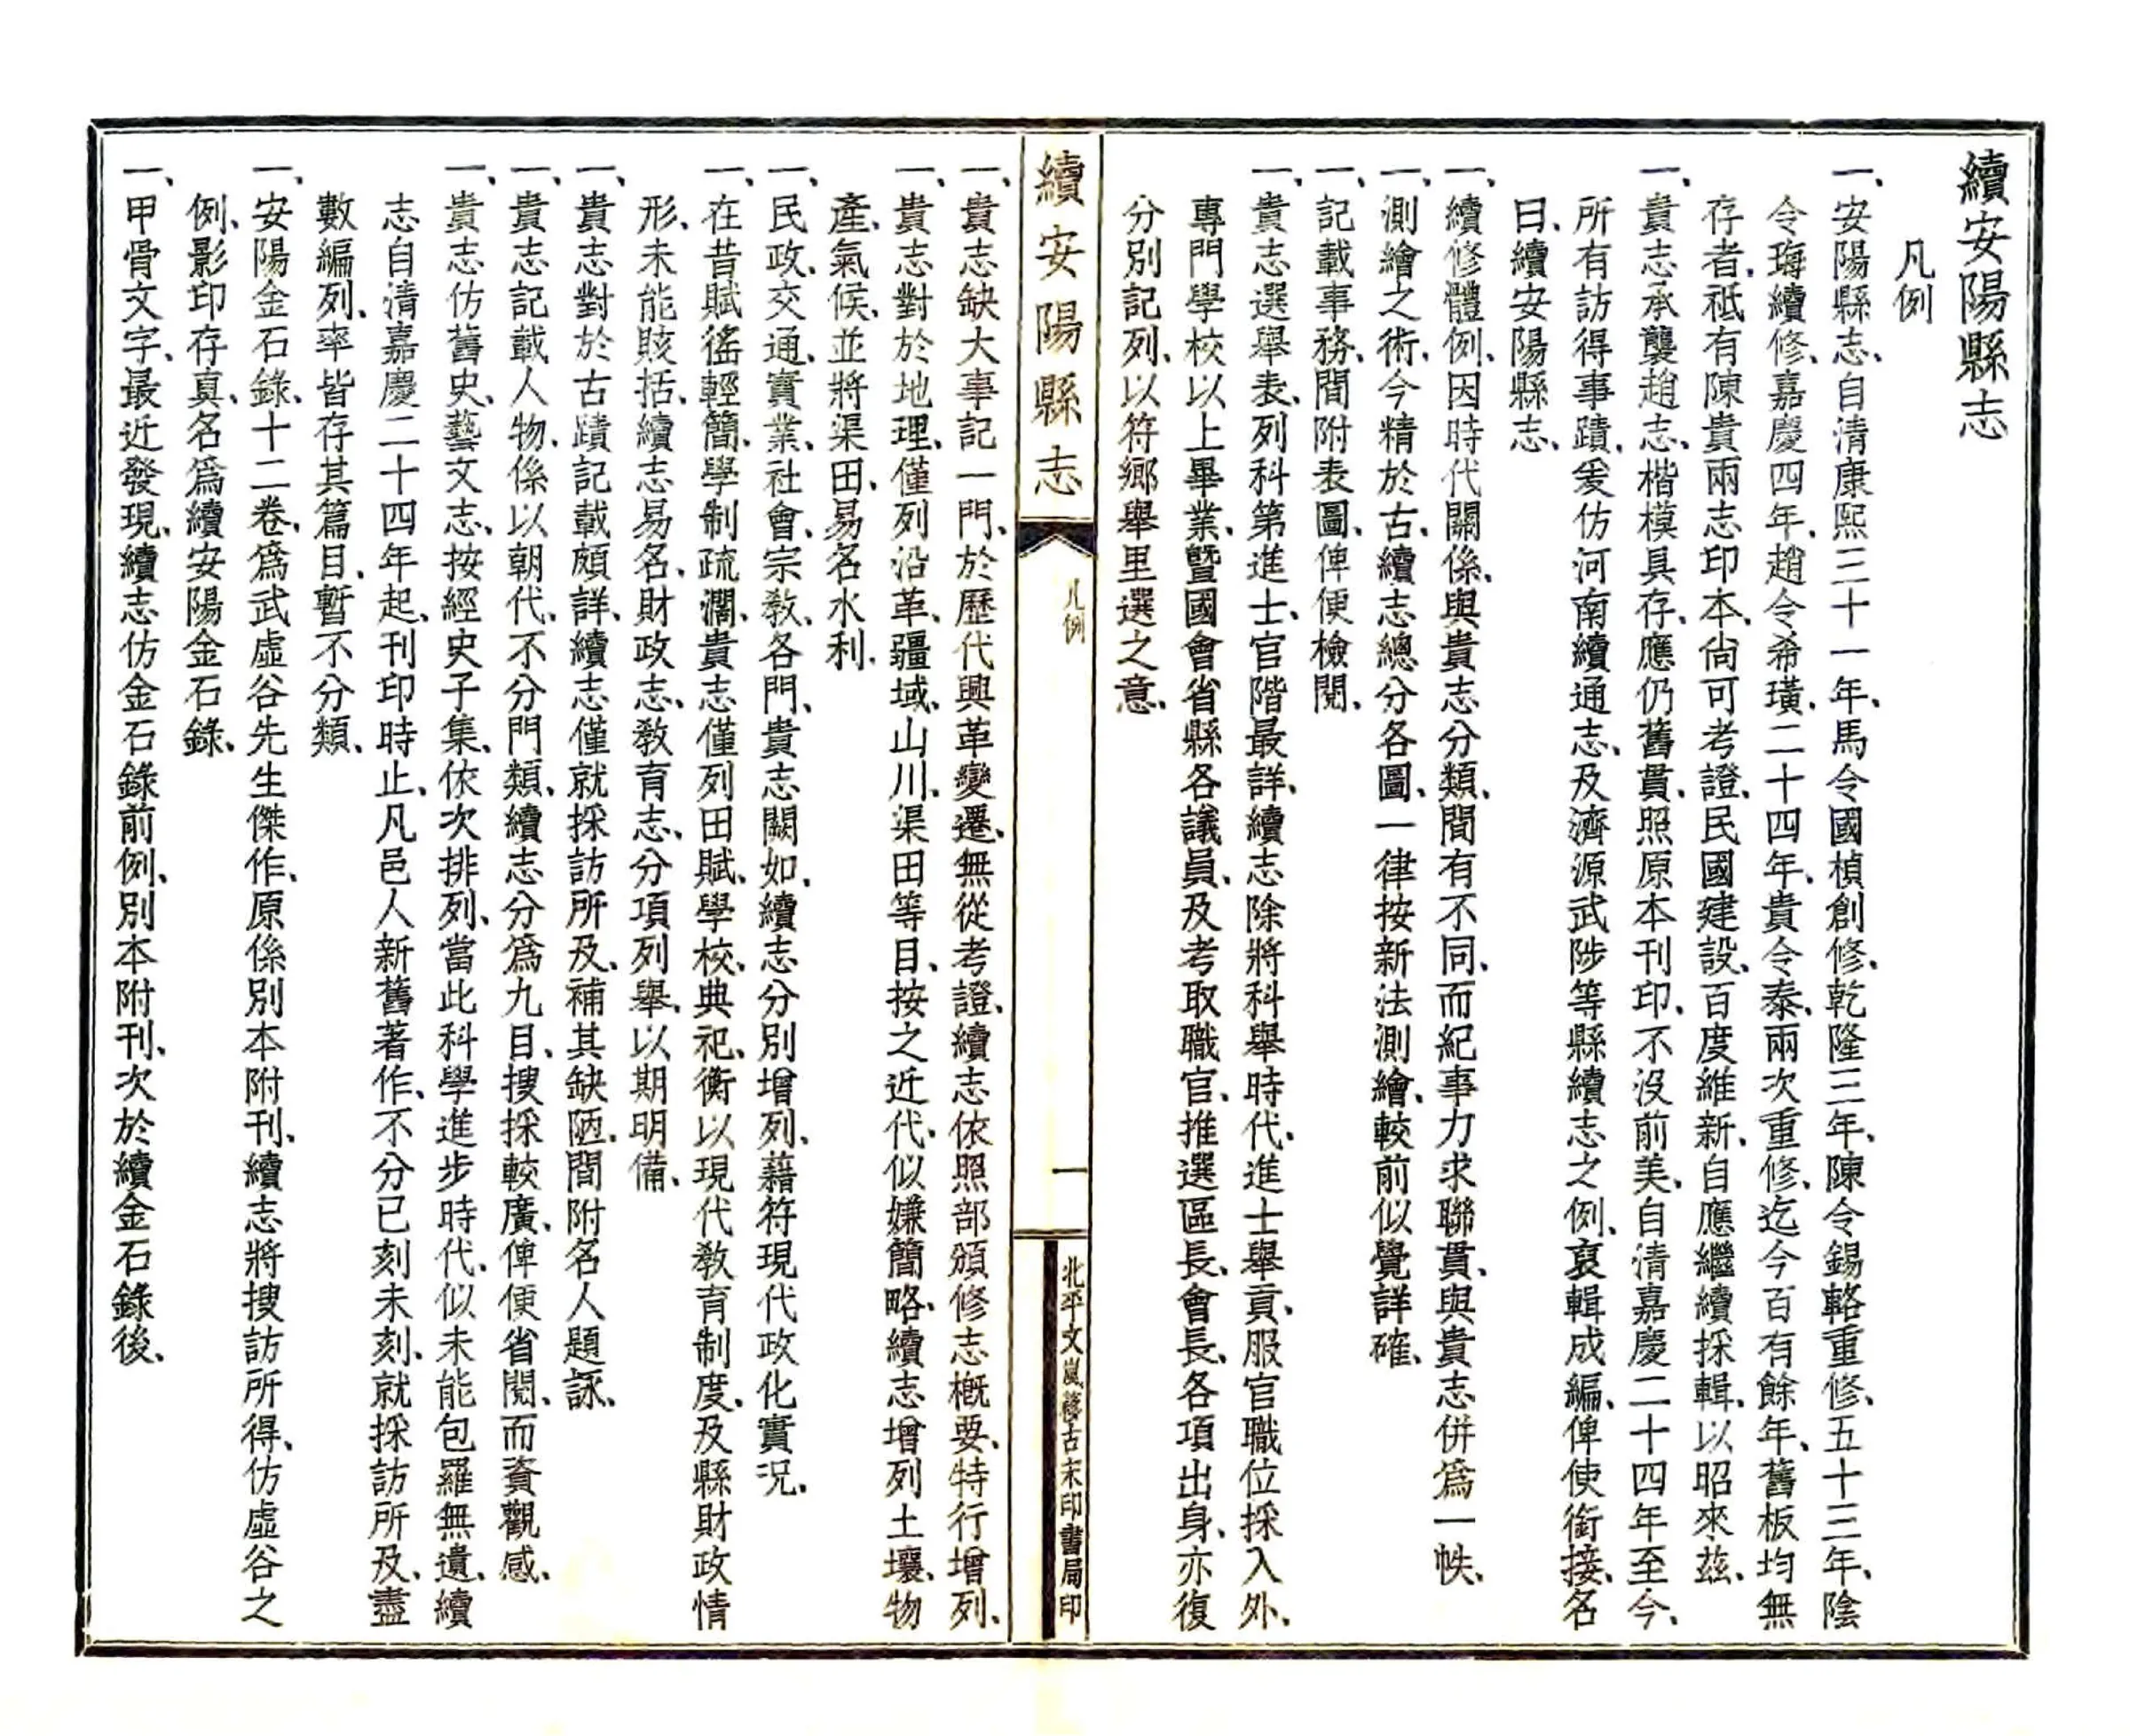 續安陽縣志
凡例
一、安陽縣志、自清康熙三十一年、馬令國楨創修、乾隆三年、陳令錫輅重修、五十三年、陰
令塼續修、嘉慶四年、趙令希璜、二十四年、貴令泰、兩次重修、迄今百有餘年、舊板均無
存者、祗有陳貴兩志印本、尙可考證、民國建設、百度維新、自應繼續採輯、以昭來茲、
一、貴志承襲趙志、楷模具存、應仍舊貫、照原本刊印、不沒前美、自清嘉慶二十四年至今、
所有訪得事蹟、爰仿河南續通志、及濟源武陟等縣續志之例、裒輯成編、俾使銜接、名
曰、續安陽縣志、
一、續修體例、因時代關係、與貴志分類、間有不同、而紀事力求聯貫、與貴志併爲一帙、
一、測繪之術、今精於古、續志總分各圖、一律按新法測繪、較前似覺詳確、
一、記載事務、間附表圖、俾便檢閱、
一、貴志選舉表、列科第進士、官階最詳、續志除將科舉時代、進士舉貢、服官職位採入外、
專門學校以上畢業、暨國會省縣各議員、及考取職官、推選區長、會長、各項出身、亦復
分別記列、以符鄉舉里選之意、
續安陽縣志
凡例
一
北平文嵐簃古宋印書局印
一、貴志缺大事記一門、於歷代興革變遷、無從考證、續志依照部頒修志概要、特行增列、
一、貴志對於地理、僅列沿革、疆域、山川、渠田等目、按之近代、似嫌簡略、續志增列土壤、物
產、氣候、並將渠田、易名水利、
一、民政、交通、實業、社會、宗敎、各門、貴志闕如、續志分別增列、藉符現代政化實況、
一、在昔賦徭輕簡、學制疏濶、貴志僅列田賦、學校、典祀、衡以現代敎育制度、及縣財政情
形、未能賅括、續志易名、財政志、敎育志、分項列舉、以期明備、
一、貴志對於古蹟記載頗詳、續志僅就採訪所及、補其缺陋、間附名人題詠、
一、貴志記載人物、係以朝代、不分門類、續志分爲九目、搜採較廣、俾便省閱、而資觀感、
一、貴志仿舊史、藝文志、按經史子集、依次排列、當此科學進步時代、似未能包羅無遺、續
志自清嘉慶二十四年起、刊印時止、凡邑人新舊著作、不分已刻未刻、就採訪所及、盡
數編列、率皆存其篇目、暫不分類、
一、安陽金石錄、十二卷、爲武虛谷先生傑作、原係別本附刊、續志將搜訪所得、仿虛谷之
例、影印存真、名爲續安陽金石錄、
一、甲骨文字、最近發現、續志仿金石錄前例、別本附刊、次於續金石錄後、